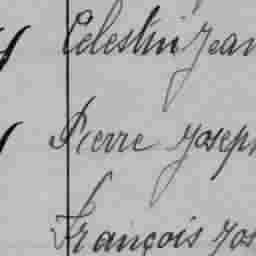 Célestin Jean
Pierre Joseph
François Jos